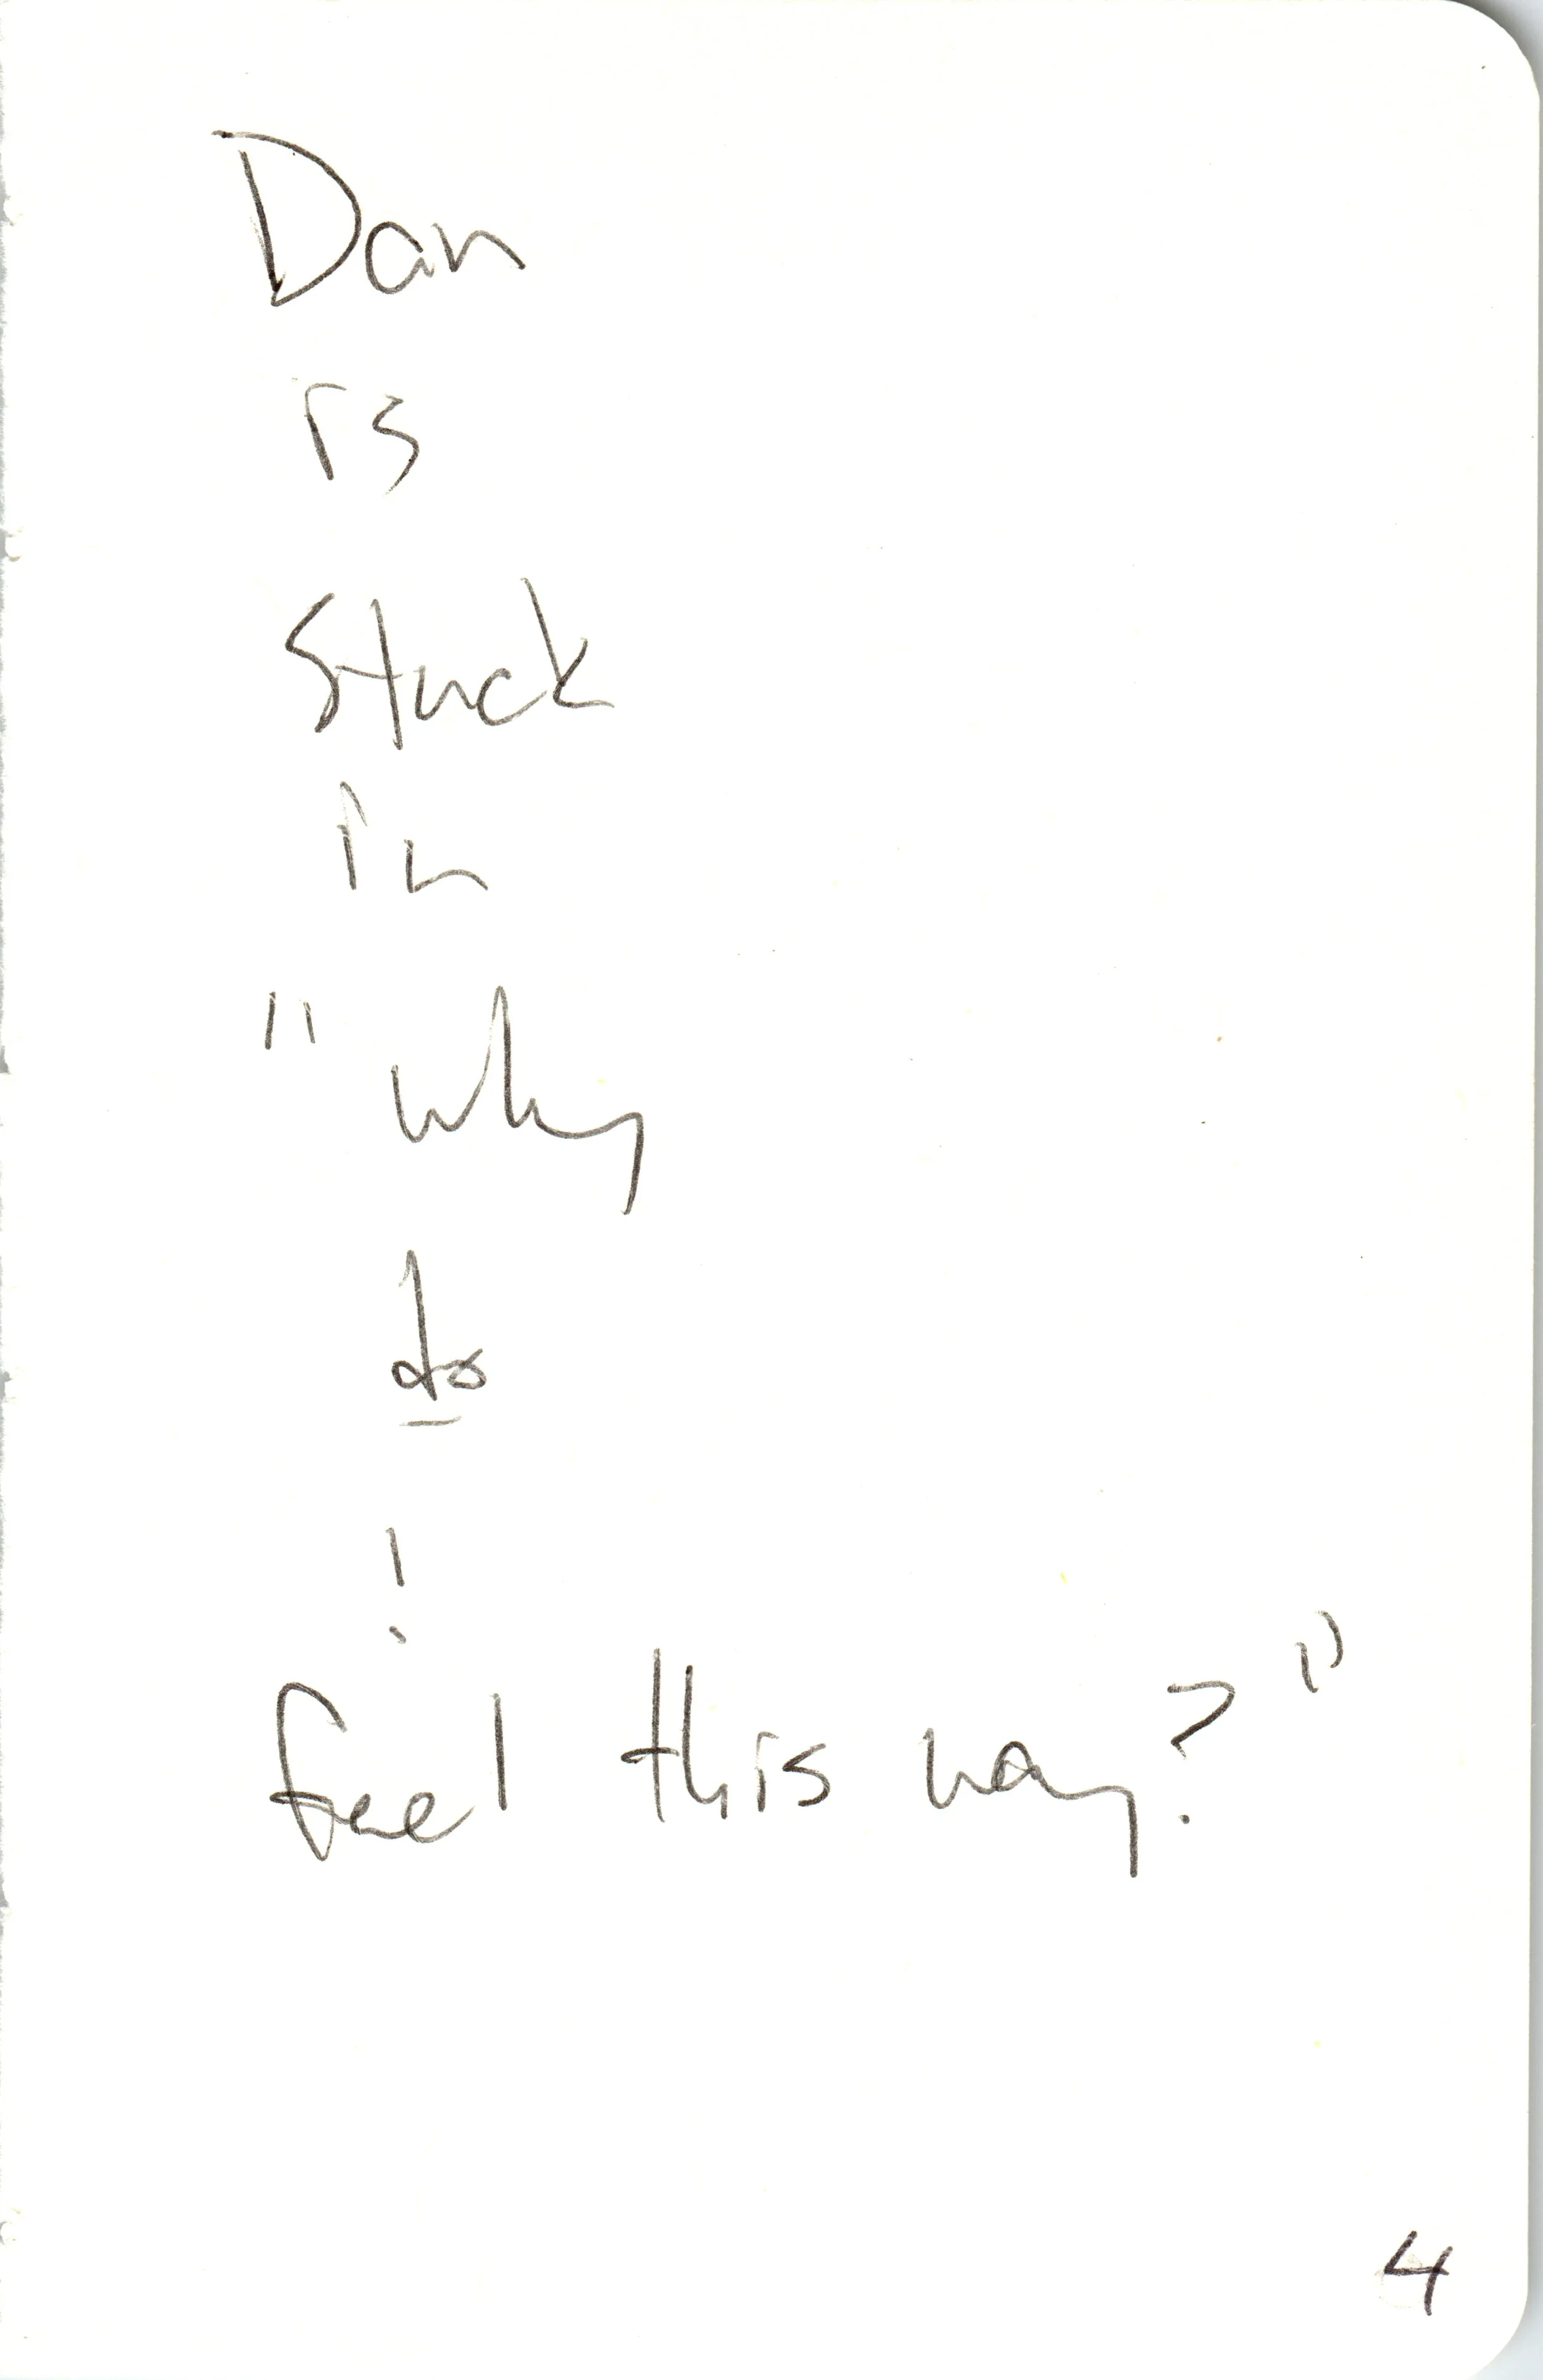 Dan
is
Stuck
in
"why
do
I
feel this way?"
4